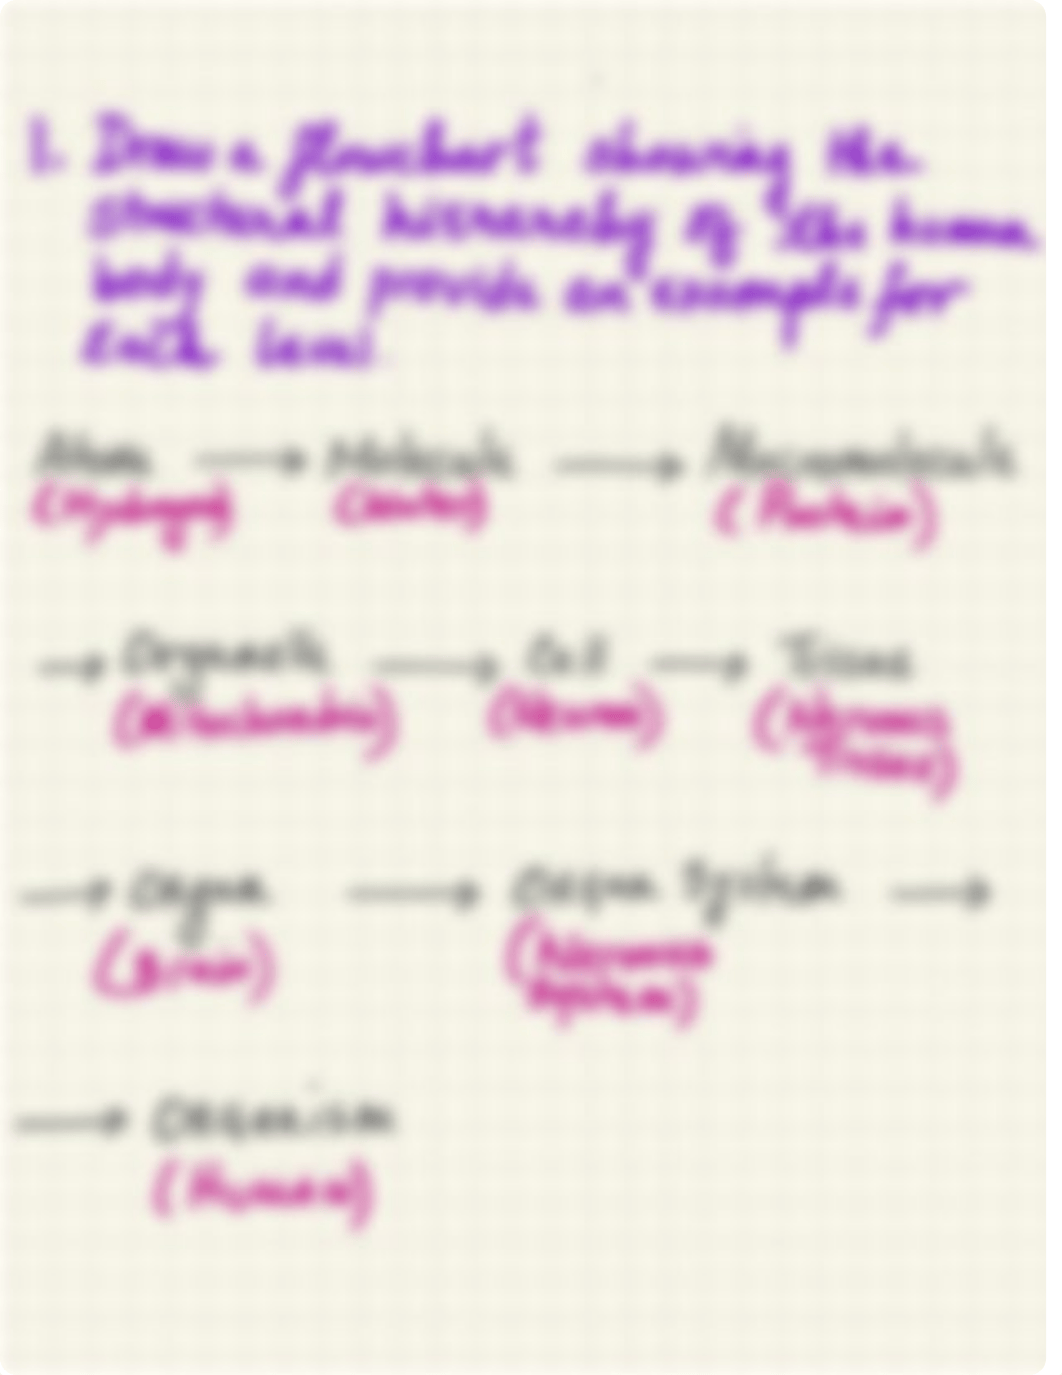 1. Draw a flowchart showing the
structural hierarchy of the human
body and provide an example for
each level.
Atom → Molecule → Macromolecule
(Hydrogen) (Water) (Protein)
→ Organelle → Cell → Tissue
(Mitochondria) (Neuron) (Nervous
Tissue)
→ Organ → Organ System →
(Brain) (Nervous
System)
→ Organism
(Human)